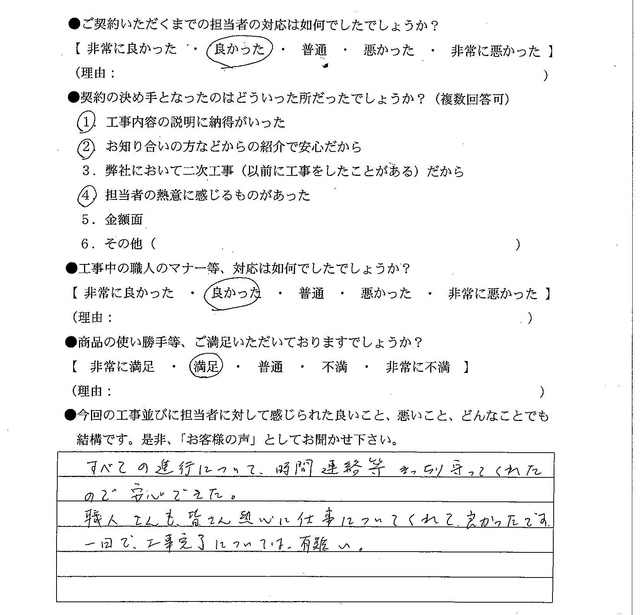 ●ご契約いただくまでの担当者の対応は如何でしたでしょうか？
【 非常に良かった ・ 良かった ・ 普通 ・ 悪かった ・ 非常に悪かった 】
（理由： ）
●契約の決め手となったのはどういった所だったでしょうか？（複数回答可）
1．工事内容の説明に納得がいった
2．お知り合いの方などからの紹介で安心だから
3．弊社において二次工事（以前に工事をしたことがある）だから
4．担当者の熱意に感じるものがあった
5．金額面
6．その他（ ）
●工事中の職人のマナー等、対応は如何でしたでしょうか？
【 非常に良かった ・ 良かった ・ 普通 ・ 悪かった ・ 非常に悪かった 】
（理由： ）
●商品の使い勝手等、ご満足いただいておりますでしょうか？
【 非常に満足 ・ 満足 ・ 普通 ・ 不満 ・ 非常に不満 】
（理由： ）
●今回の工事並びに担当者に対して感じられた良いこと、悪いこと、どんなことでも
結構です。是非、「お客様の声」としてお聞かせ下さい。
すべての進行について、時間連絡等 きっちり守ってくれた
ので 安心できた。
職人さんも、皆さん熱心に仕事についてくれて、良かったです
一日で、工事完了については、有難い。